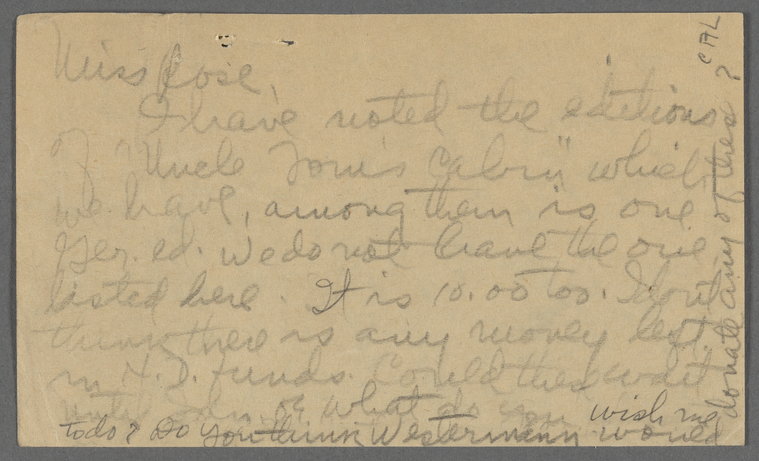 Miss Rose,
I have noted the editions
of "Uncle Tom's Cabin" which
we have, among them is one
Ger. ed. We do not have the one
listed here. It is 10.00 too. I don't
think there is any money left
in H. D. Funds. Could they wait
until Jan. or what do you wish me
to do? Do you think Westermann would
donate any of these?
CAL